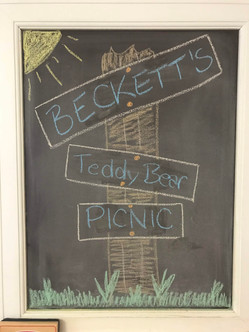 BECKETT'S
Teddy Bear
PICNIC